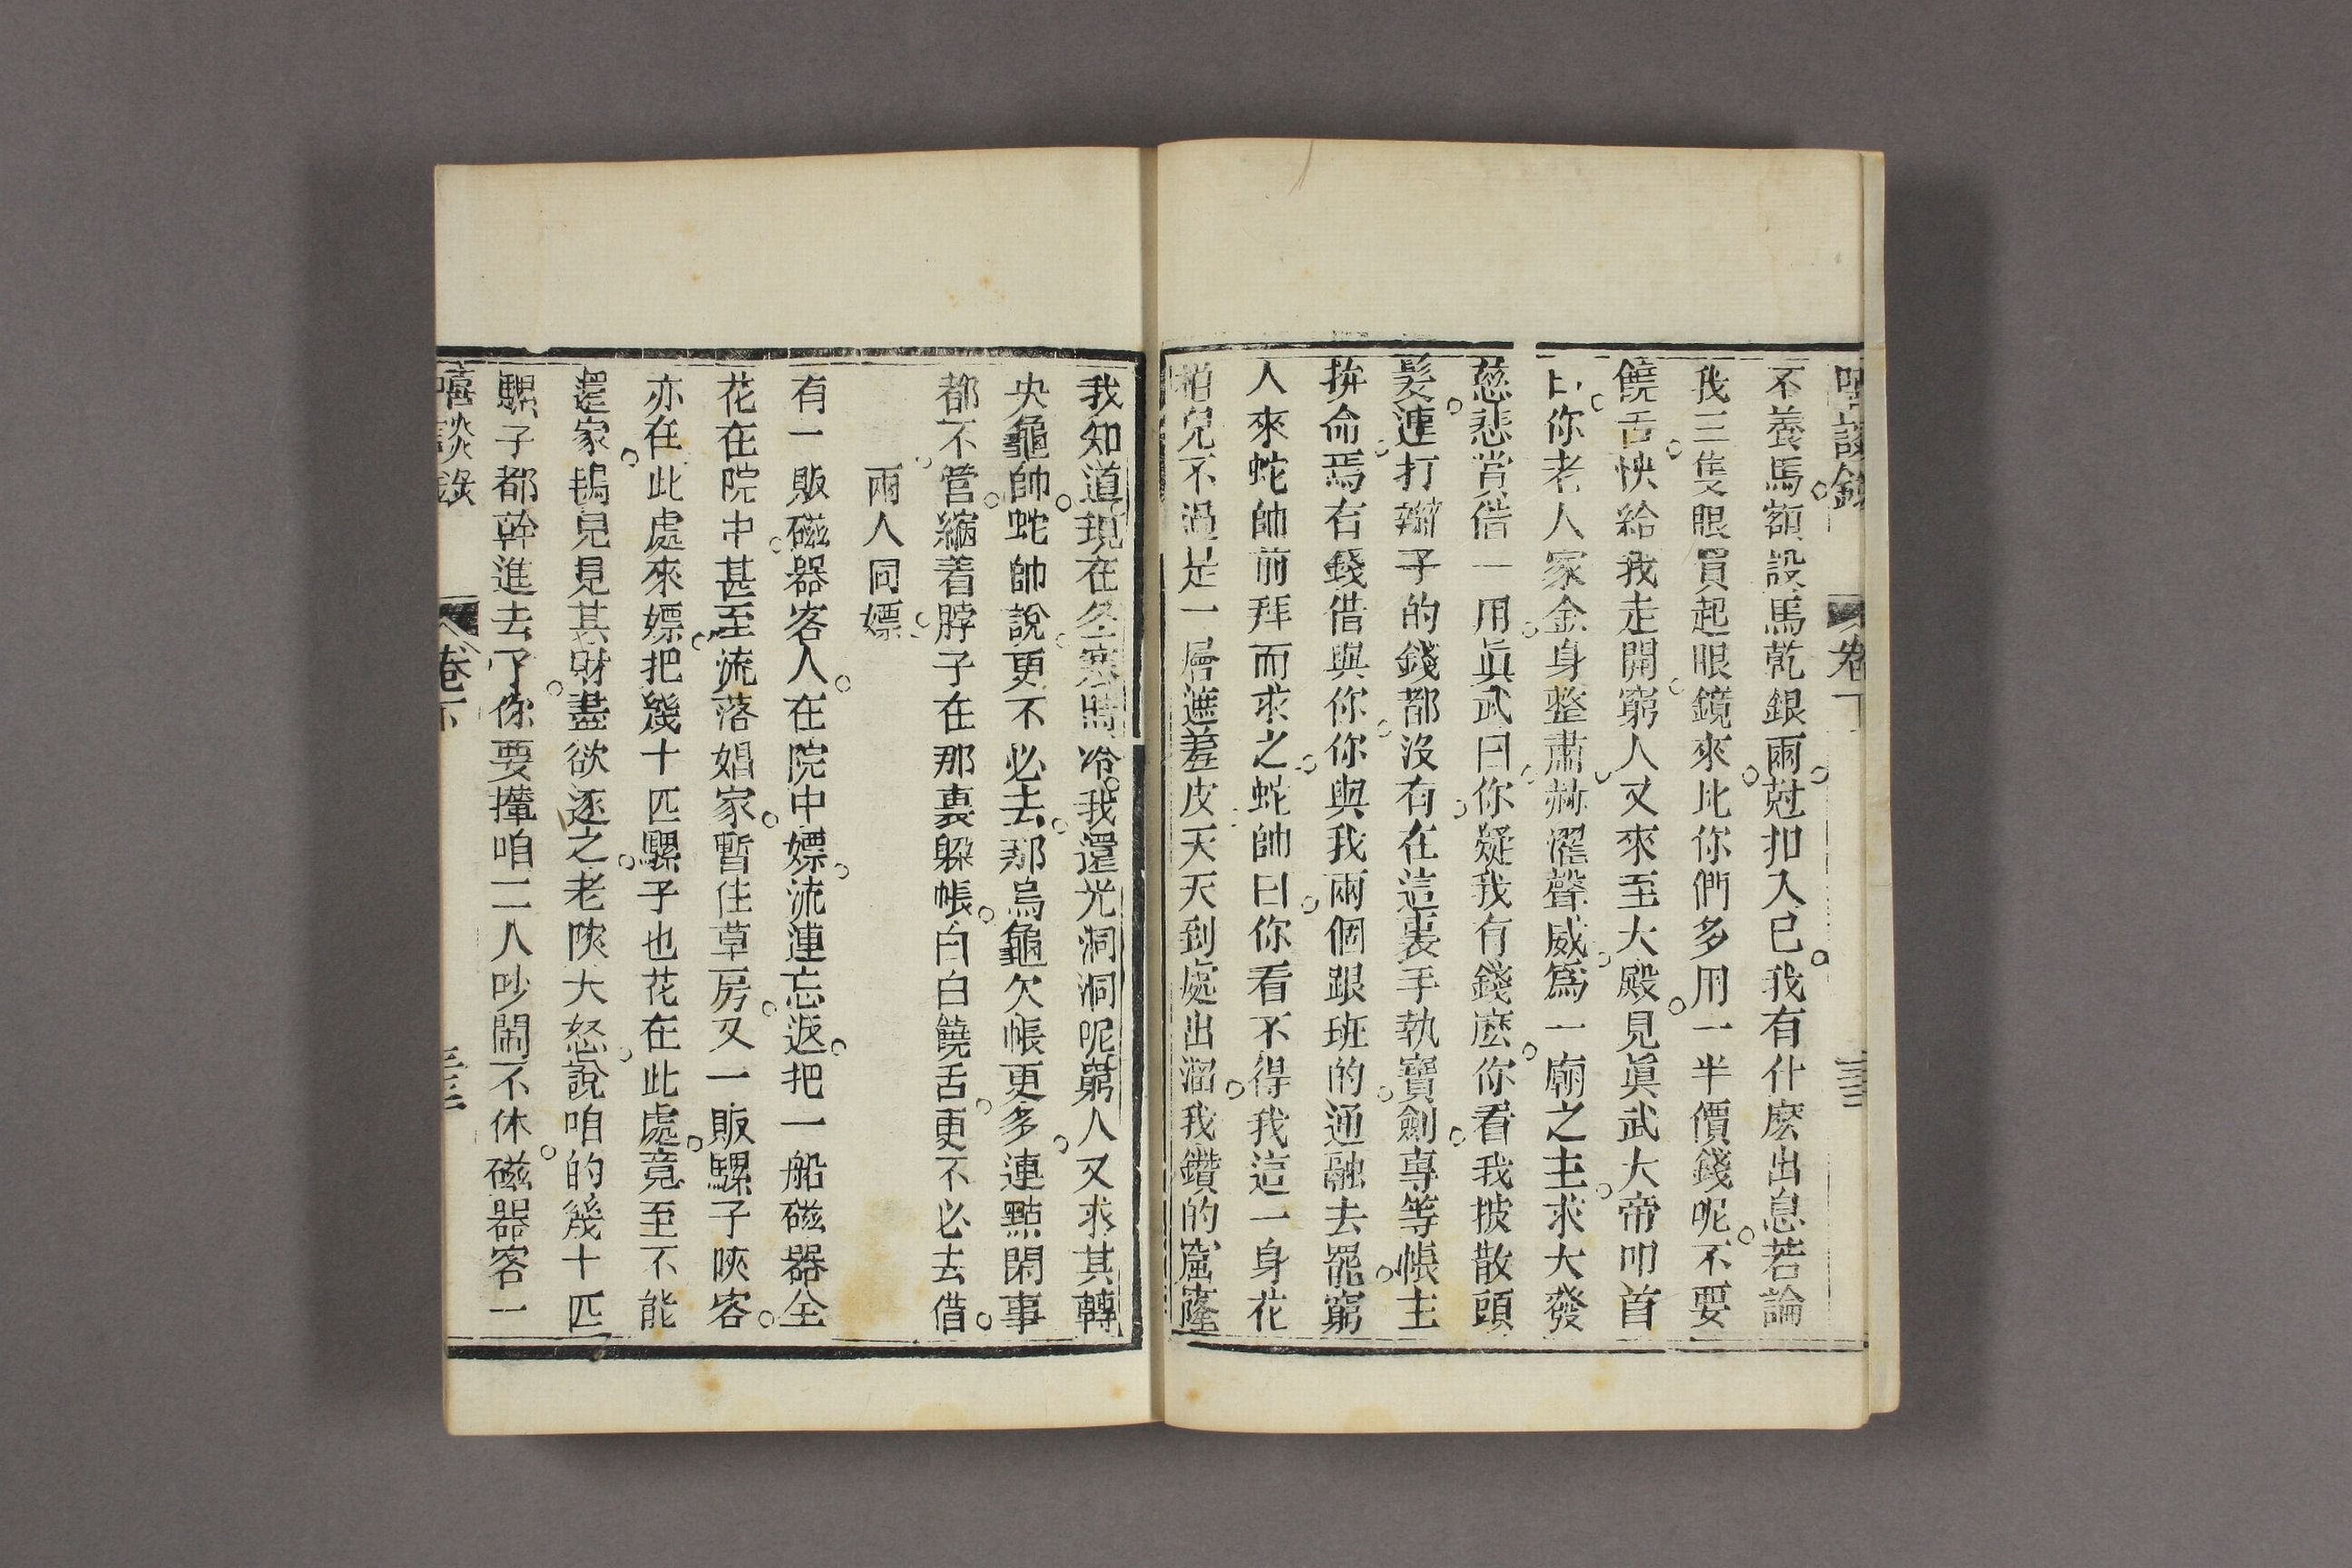 嘻談錄 卷下
不養馬額設馬乾銀兩尅扣入己。我有什麽出息若論
我三隻眼買起眼鏡來。比你們多用一半價錢呢。不要
饒舌。快給我走開。窮人又來至大殿。見眞武大帝叩首
曰。你老人家金身整肅。赫濯聲威。爲一廟之主。求大發
慈悲賞借一用。眞武曰。你疑我有錢麽。你看我披散頭
髮。連打辮子的錢都沒有。在這裏手執寶劍。專等帳主
拚命。焉有錢借與你。你與我兩個跟班的。通融去罷。窮
人來蛇帥前拜而求之。蛇帥曰。你看不得我這一身花
袍兒不過是一層遮羞皮。天天到處出溜。我鑽的窟窿
我知道。現在冬寒時冷。我還光洞洞呢。窮人又求其轉
央龜帥。蛇帥說。更不必去。那烏龜欠帳更多。連點閑事
都不管。縮着脖子在那裏躲帳。白白饒舌。更不必去借。
兩人同嫖
有一販磁器客人。在院中嫖。流連忘返。把一船磁器全
花在院中。甚至流落娼家。暫住草房。又一販騾子陝客。
亦在此處來嫖。把幾十匹騾子也花在此處。竟至不能
還家。鴇兒見其財盡欲逐之。老陝大怒。說咱的幾十匹
騾子都幹進去了。你要攆咱。二人吵鬧不休。磁器客一
嘻談錄 卷下 三三